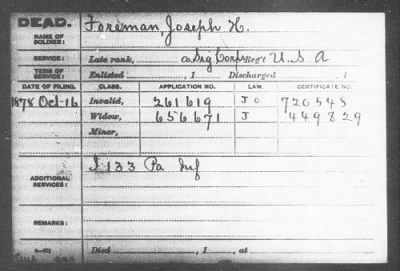 DEAD.
NAME OF SOLDIER: Foreman, Joseph H.
SERVICE: Late rank, Co. Sig Corps Reg't U. S. A
TERM OF SERVICE: Enlisted , 1 Discharged , 1
DATE OF FILING. CLASS. APPLICATION NO. LAW. CERTIFICATE NO.
1878 Oct-16 Invalid, 261619 J O 720548
Widow, 656671 J 449829
Minor,
ADDITIONAL SERVICES: I 133 Pa Inf
REMARKS:
Died , 1 , at